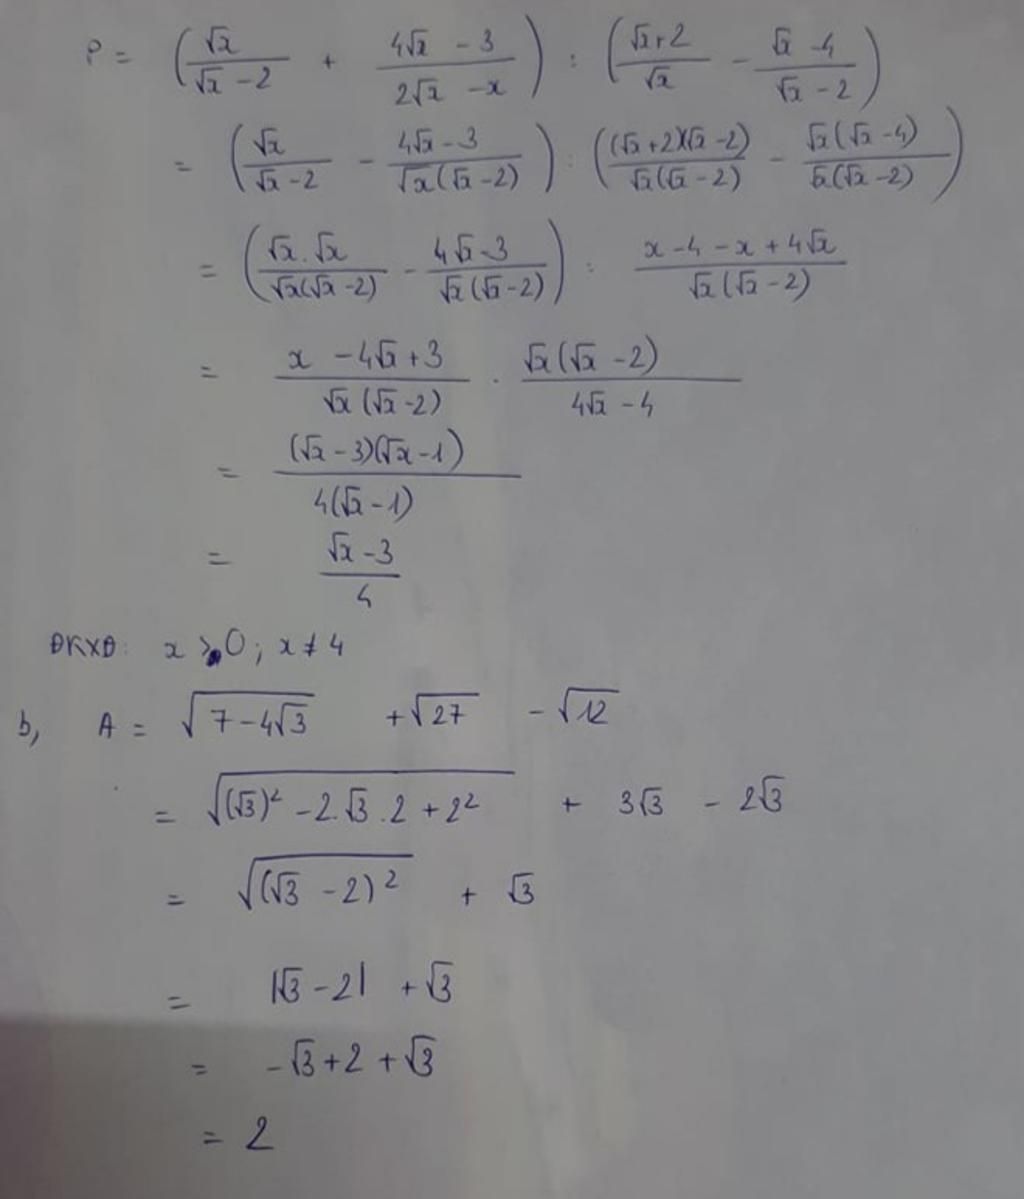 P = (√x/(√x - 2) + (4√x - 3)/(2√x - x)) : ((√x+2)/√x - (√x - 4)/(√x - 2))
= (√x/(√x - 2) - (4√x - 3)/(√x(√x - 2))) : (((√x+2)(√x - 2))/(√x(√x - 2)) - (√x(√x - 4))/(√x(√x - 2)))
= ((√x.√x)/(√x(√x - 2)) - (4√x - 3)/(√x(√x - 2))) : (x - 4 - x + 4√x)/(√x(√x - 2))
= (x - 4√x + 3)/(√x(√x - 2)) . (√x(√x - 2))/(4√x - 4)
= ((√x - 3)(√x - 1))/(4(√x - 1))
= (√x - 3)/4
ĐKXĐ: x > 0; x ≠ 4
b, A = √(7 - 4√3) + √27 - √12
= √((√3)² - 2.√3.2 + 2²) + 3√3 - 2√3
= √((√3 - 2)²) + √3
= |√3 - 2| + √3
= -√3 + 2 + √3
= 2